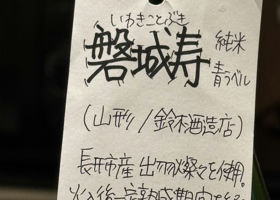 いわきことぶき
磐城寿 純米
青ラベル
(山形/鈴木酒造店)
長井市産 出羽燦々を使用。
火入後一定熟成期間を